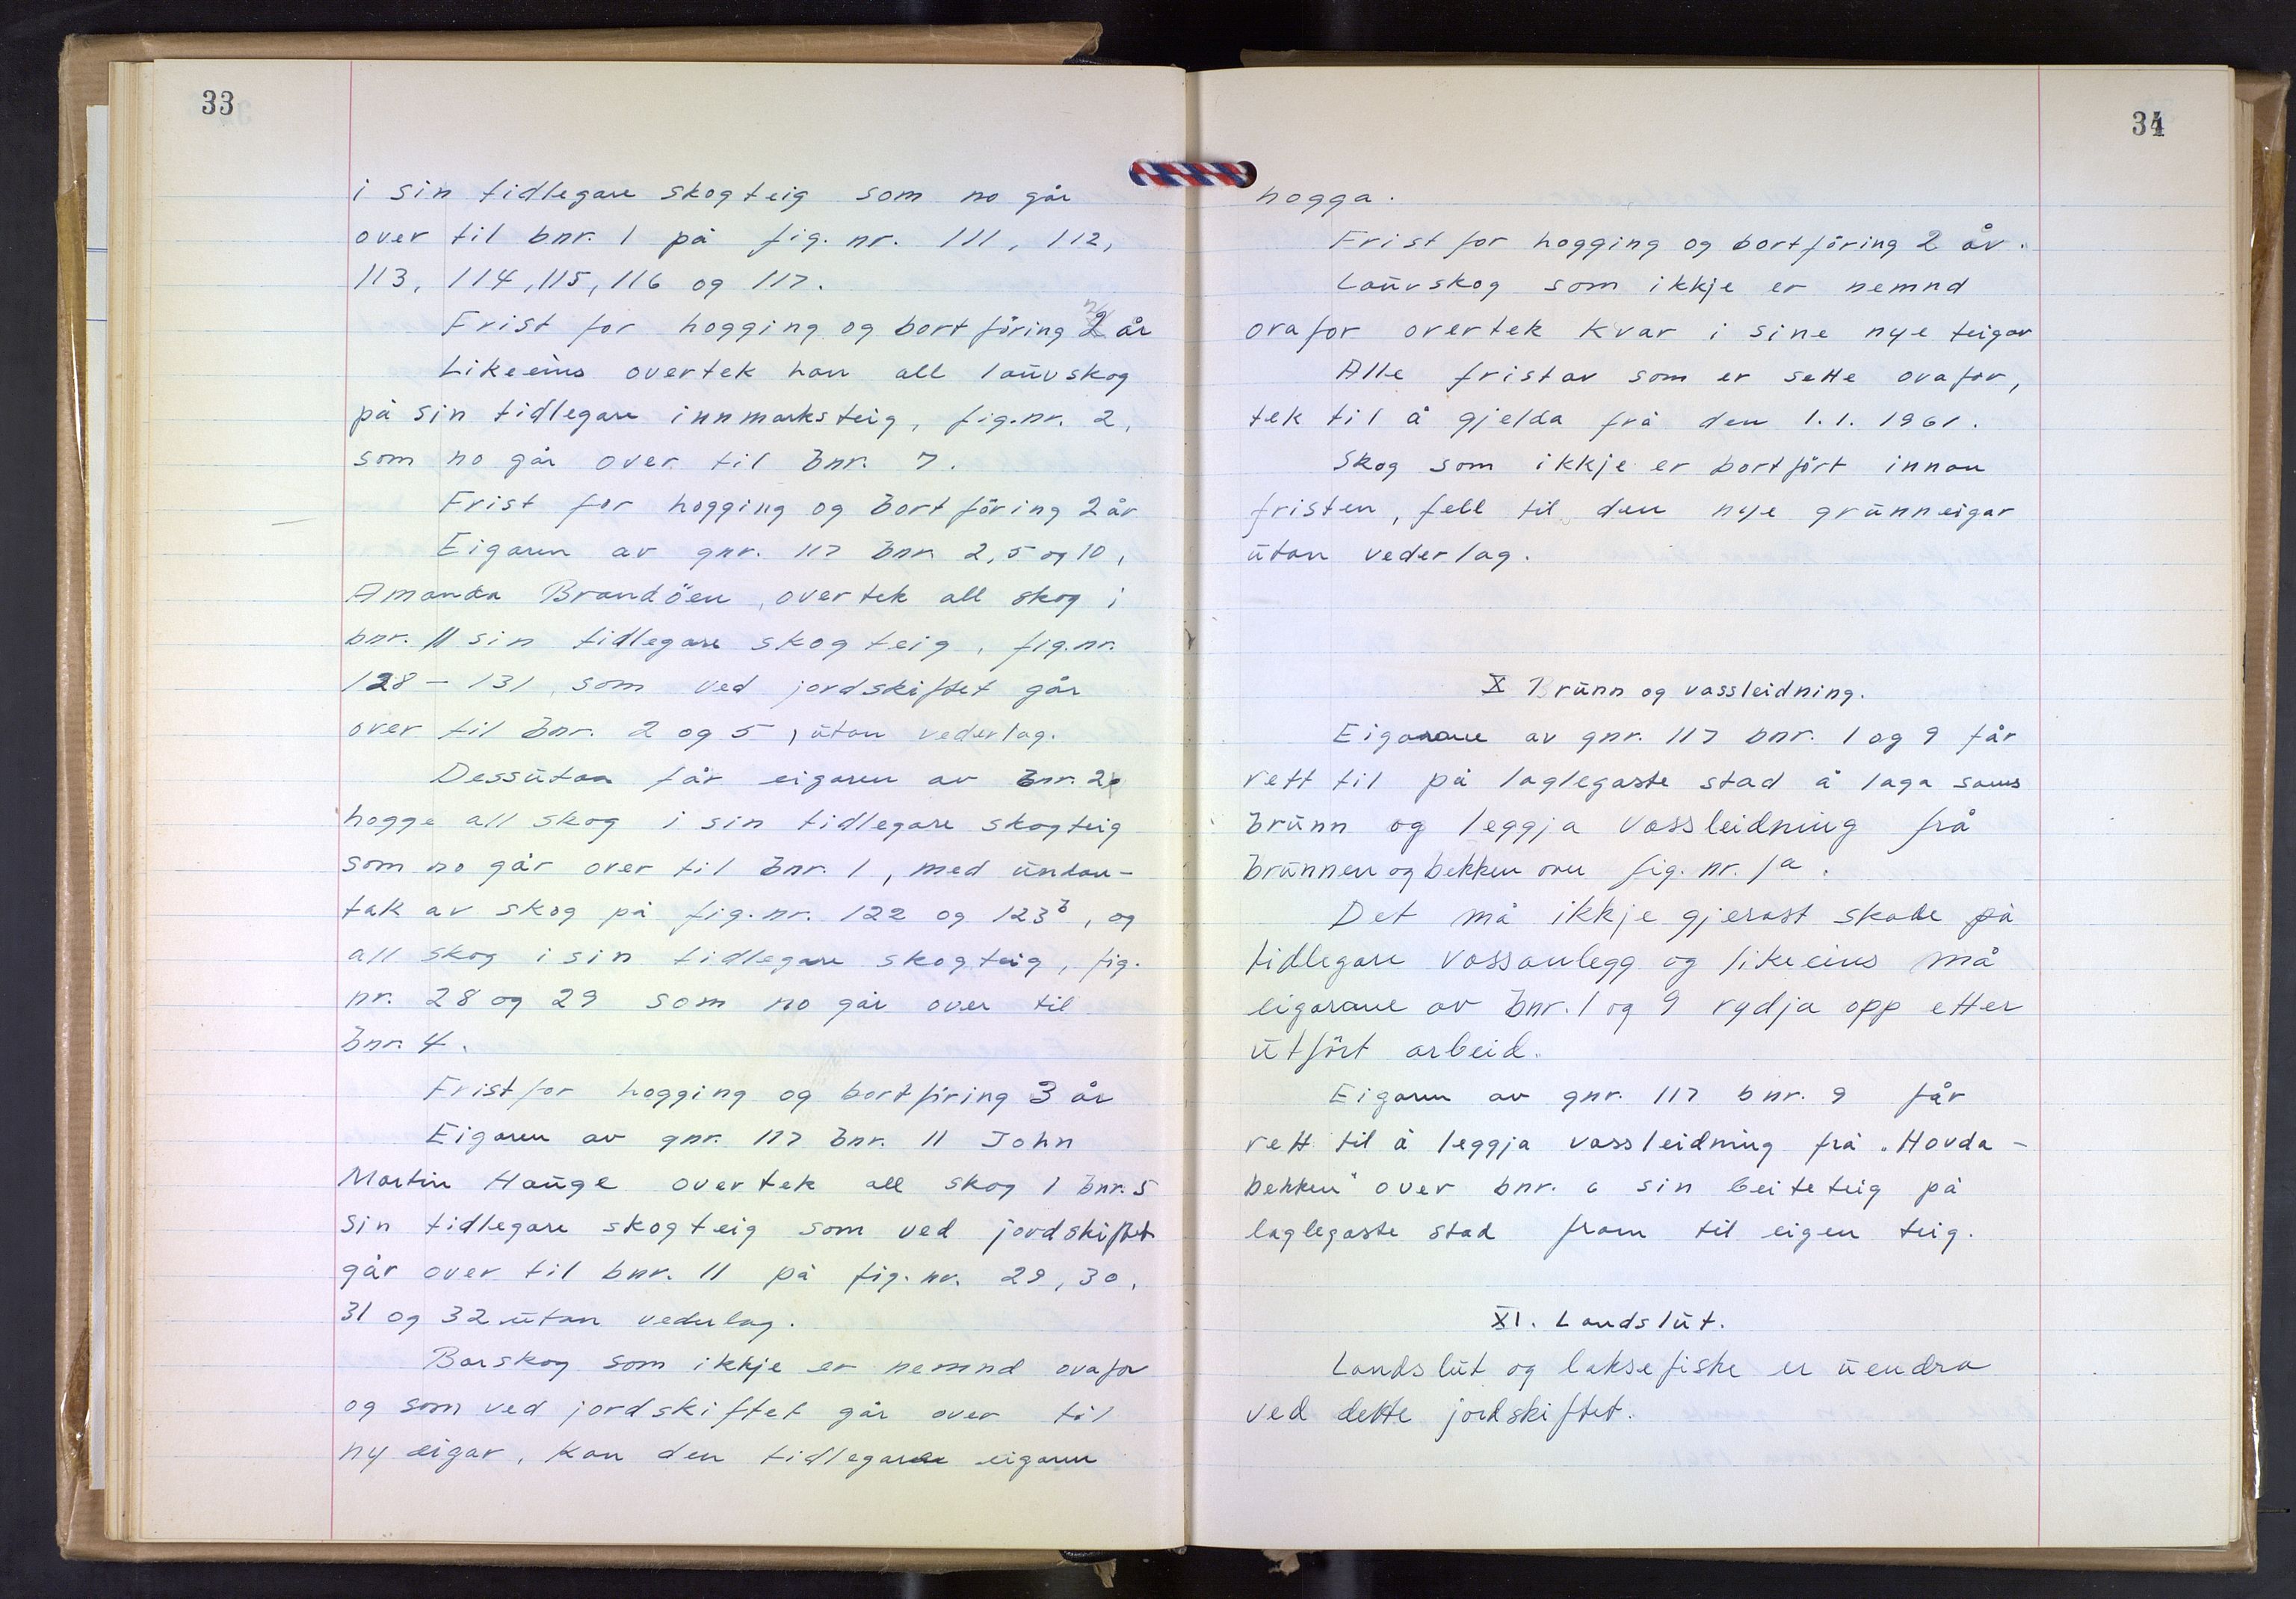 33
i sin tidlegare skogteig som no går
over til bnr. 1 på fig. nr. 111, 112,
113, 114, 115, 116 og 117.
Frist for hogging og bortföring 2 år
Likeeins overtek han all lauvskog
på sin tidlegare innmarksteig, fig.nr. 2,
som no går over til bnr. 7.
Frist for hogging og bortföring 2 år
Eigaren av gnr. 117 bnr. 2, 5 og 10,
Amanda Brandöen, overtek all skog i
bnr. 11 sin tidlegare skogteig, fig.nr.
128 – 131, som ved jordskiftet går
over til bnr. 2 og 5, utan vederlag.
Dessutan får eigaren av bnr. 2
hogge all skog i sin tidlegare skogteig
som no går over til bnr. 1, med undan-
tak av skog på fig.nr. 122 og 123b, og
all skog i sin tidlegare skogteig, fig.
nr. 28 og 29 som no går over til
bnr. 4.
Frist for hogging og bortföring 3 år
Eigaren av gnr. 117 bnr. 11 John
Martin Hauge overtek all skog i bnr. 5
sin tidlegare skogteig som ved jordskiftet
går over til bnr. 11 på fig. nr. 29, 30,
31 og 32 utan vederlag.
Barskog som ikkje er nemnd ovafor
og som ved jordskiftet går over til
ny eigar, kan den tidlegare eigaren
34
hogga.
Frist for hogging og bortföring 2 år.
Lauvskog som ikkje er nemnd
ovafor overtek kvar i sine nye teigar
Alle fristar som er sette ovafor,
tek til å gjelda frå den 1.1. 1961.
Skog som ikkje er bortfört innan
fristen, fell til den nye grunneigar
utan vederlag.
X Brunn og vassleidning.
Eigarane av gnr. 117 bnr. 1 og 9 får
rett til på laglegaste stad å laga sams
brunn og leggja vassleidning frå
brunnen og bekken over fig. nr. 1a.
Det må ikkje gjerast skade på
tidlegare vassanlegg og likeeins må
eigarane av bnr. 1 og 9 rydja opp etter
utfört arbeid.
Eigaren av gnr. 117 bnr. 9 får
rett til å leggja vassleidning frå „Hovda-
bekken" over bnr. 6 sin beiteteig på
laglegaste stad fram til eigen teig.
XI. Landslut.
Landslut og laksefiske er uendra
ved dette jordskiftet.